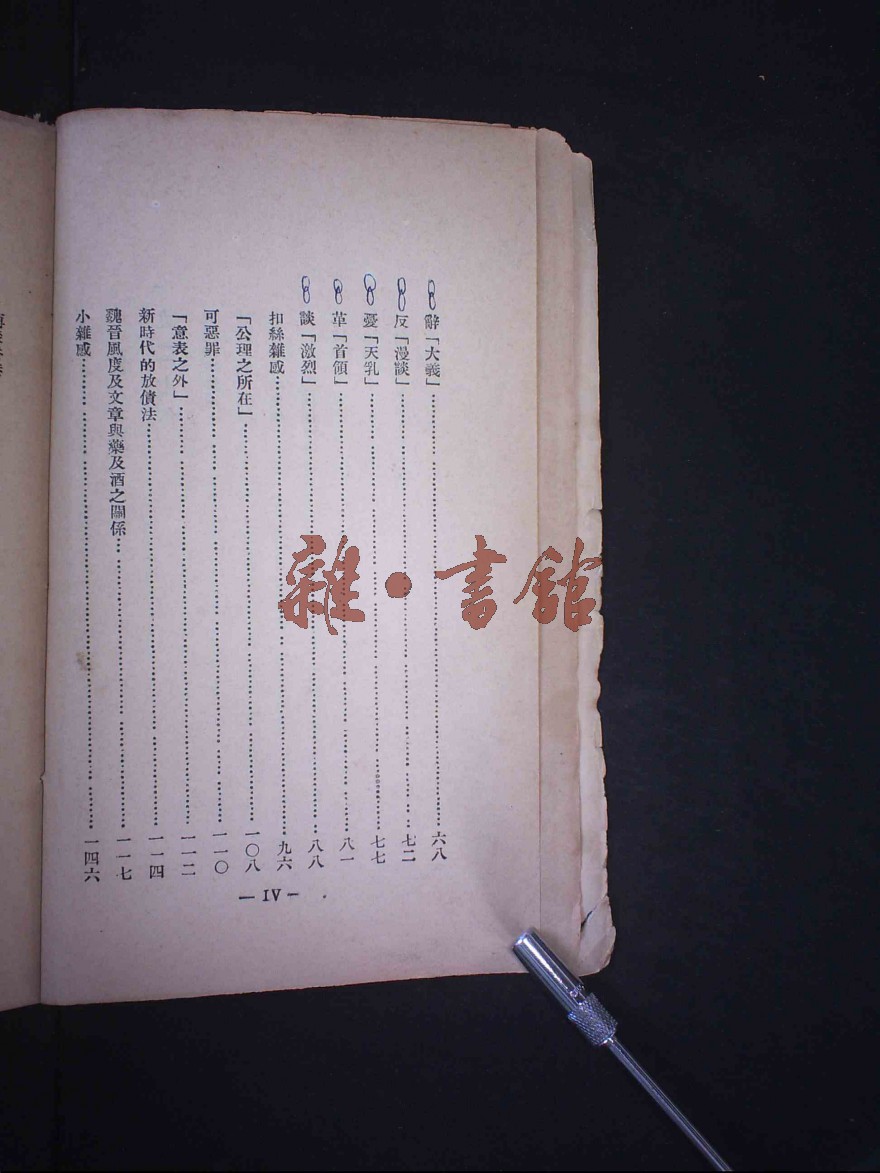 辭「大義」……六八
反「漫談」……七二
憂「天乳」……七七
革「首領」……八一
談「激烈」……八八
扣絲雜感……九六
「公理之所在」……一〇八
可惡罪……一一〇
「意表之外」……一一二
新時代的放債法……一一四
魏晉風度及文章與藥及酒之關係……一一七
小雜感……一四六
— IV —
雜·書館